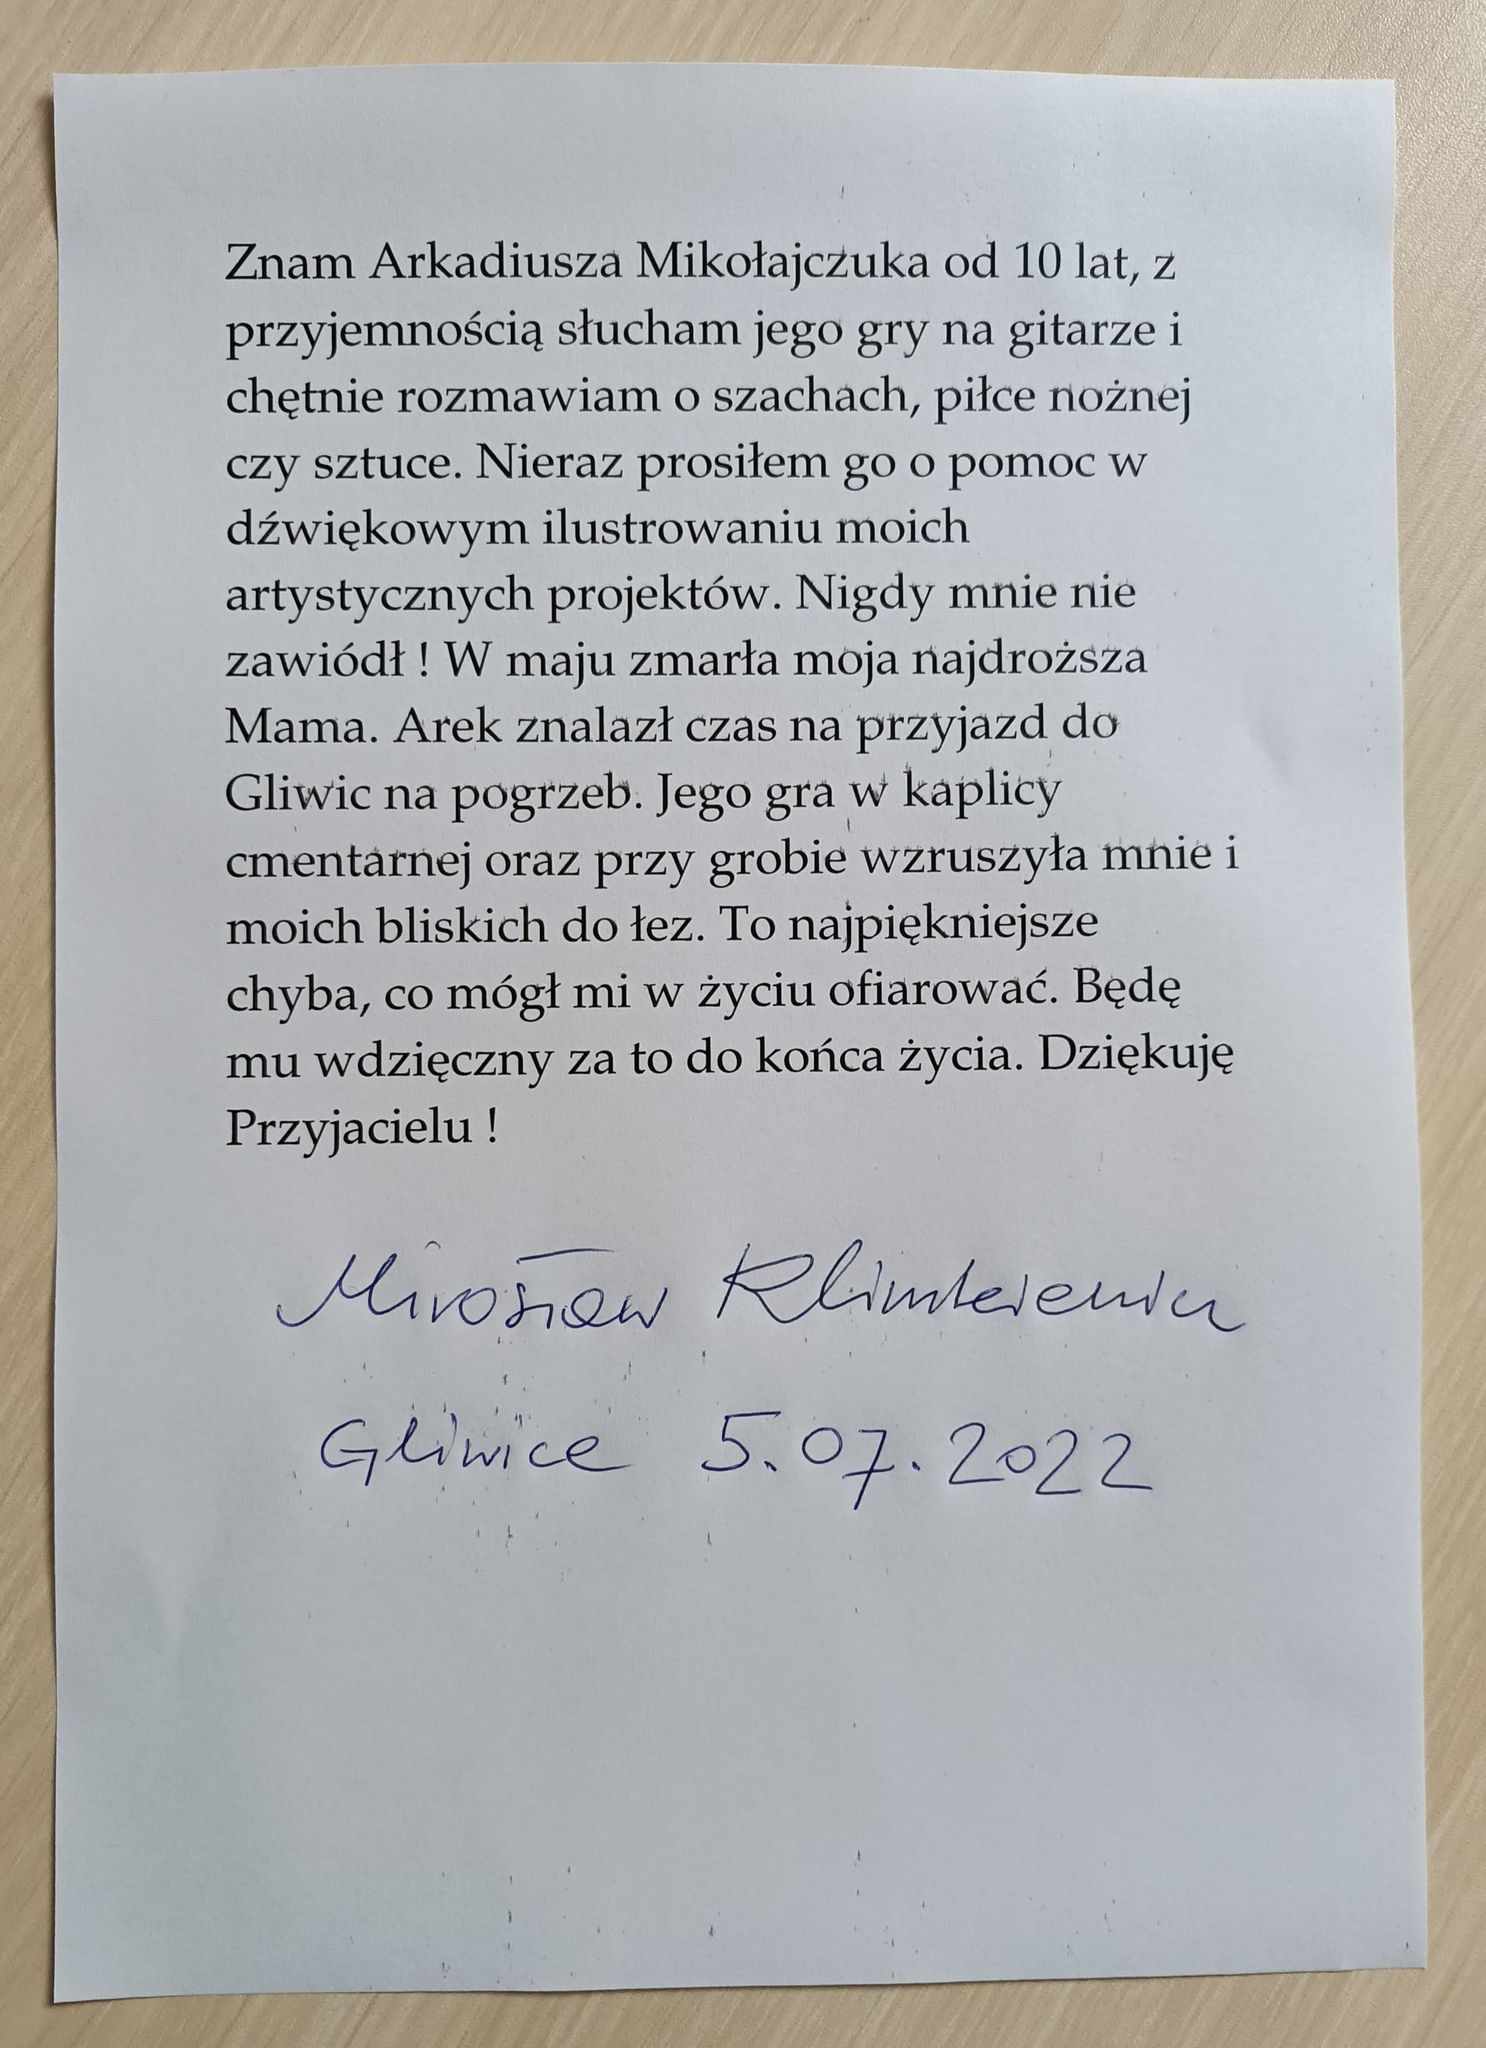 Znam Arkadiusza Mikołajczuka od 10 lat, z
przyjemnością słucham jego gry na gitarze i
chętnie rozmawiam o szachach, piłce nożnej
czy sztuce. Nieraz prosiłem go o pomoc w
dźwiękowym ilustrowaniu moich
artystycznych projektów. Nigdy mnie nie
zawiódł ! W maju zmarła moja najdroższa
Mama. Arek znalazł czas na przyjazd do
Gliwic na pogrzeb. Jego gra w kaplicy
cmentarnej oraz przy grobie wzruszyła mnie i
moich bliskich do łez. To najpiękniejsze
chyba, co mógł mi w życiu ofiarować. Będę
mu wdzięczny za to do końca życia. Dziękuję
Przyjacielu !
Mirosław
Gliwice 5.07.2022